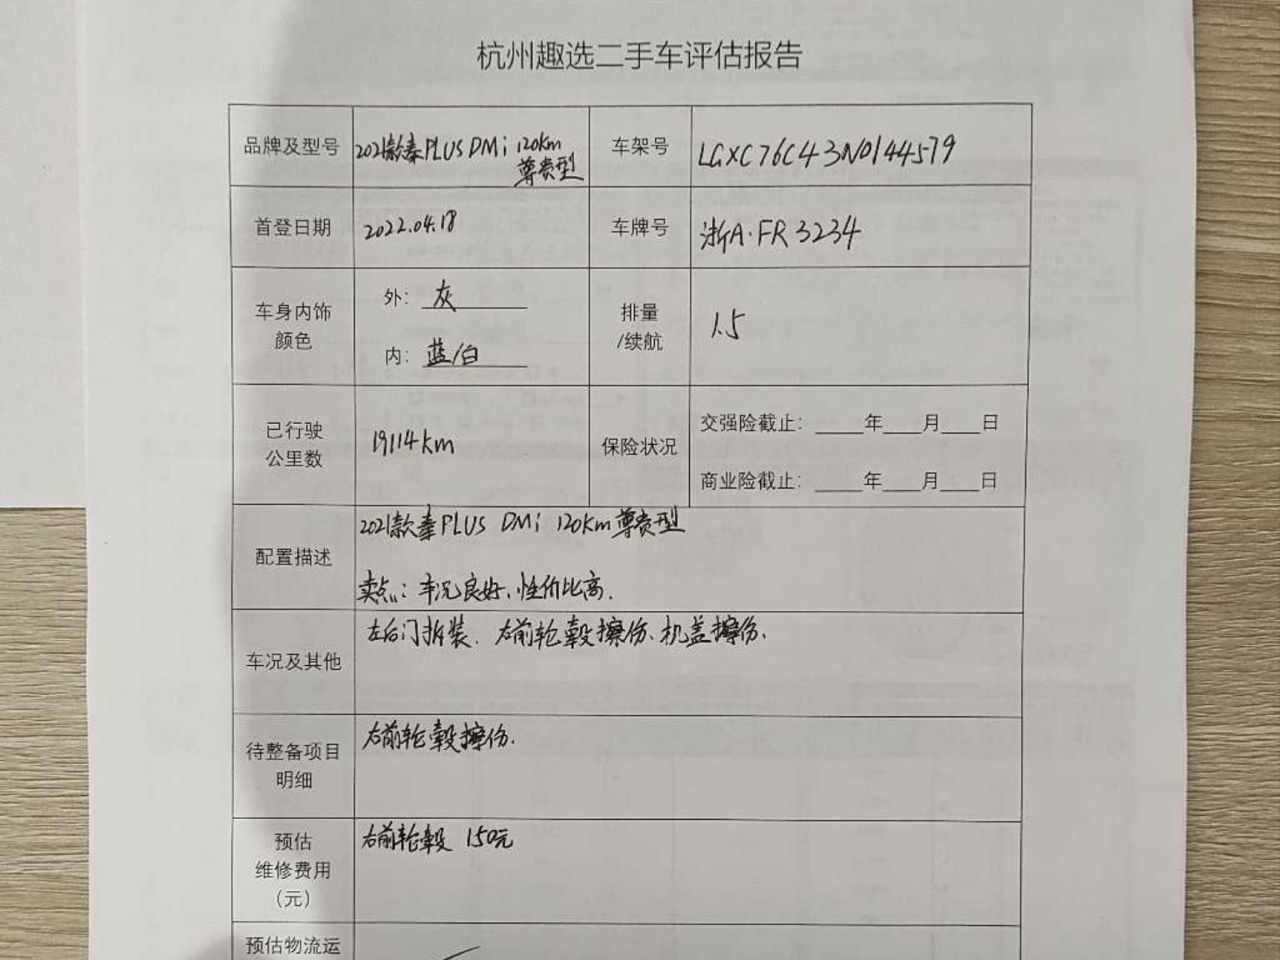 杭州趣选二手车评估报告
品牌及型号 2021款秦PLUS DMi 120km 尊贵型 车架号 LGXC76C43N0144579
首登日期 2022.04.18 车牌号 浙A·FR3234
车身内饰颜色 外: 灰 排量/续航 1.5
内: 蓝/白
已行驶公里数 19114km 保险状况 交强险截止: ____年____月____日
商业险截止: ____年____月____日
配置描述 2021款秦PLUS DMi 120km尊贵型
卖点: 车况良好、性价比高.
车况及其他 左后门拆装、右前轮毂擦伤、机盖擦伤.
待整备项目明细 右前轮毂擦伤.
预估维修费用(元) 右前轮毂 150元
预估物流运